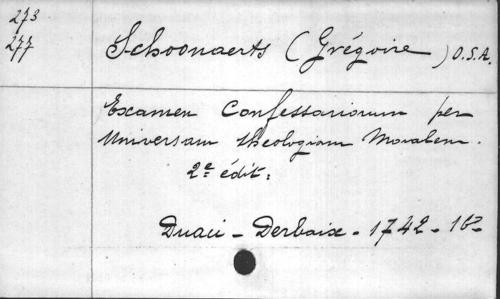 273
277
Schoonaerts (Grégoire) O.S.A.
Examen Confessariorum per
Universam theologiam Moralem.
2e édit:
Duaci - Derbaix - 1742 - 16o